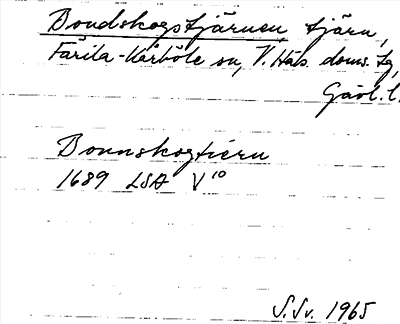 Bondskogstjärnen, tjärn,
Färila-Kårböle sn, V. Häls. doms. tg,
Gävl. l.
Bonnskogtiern
1689 LSA V 10
S. Sv. 1965